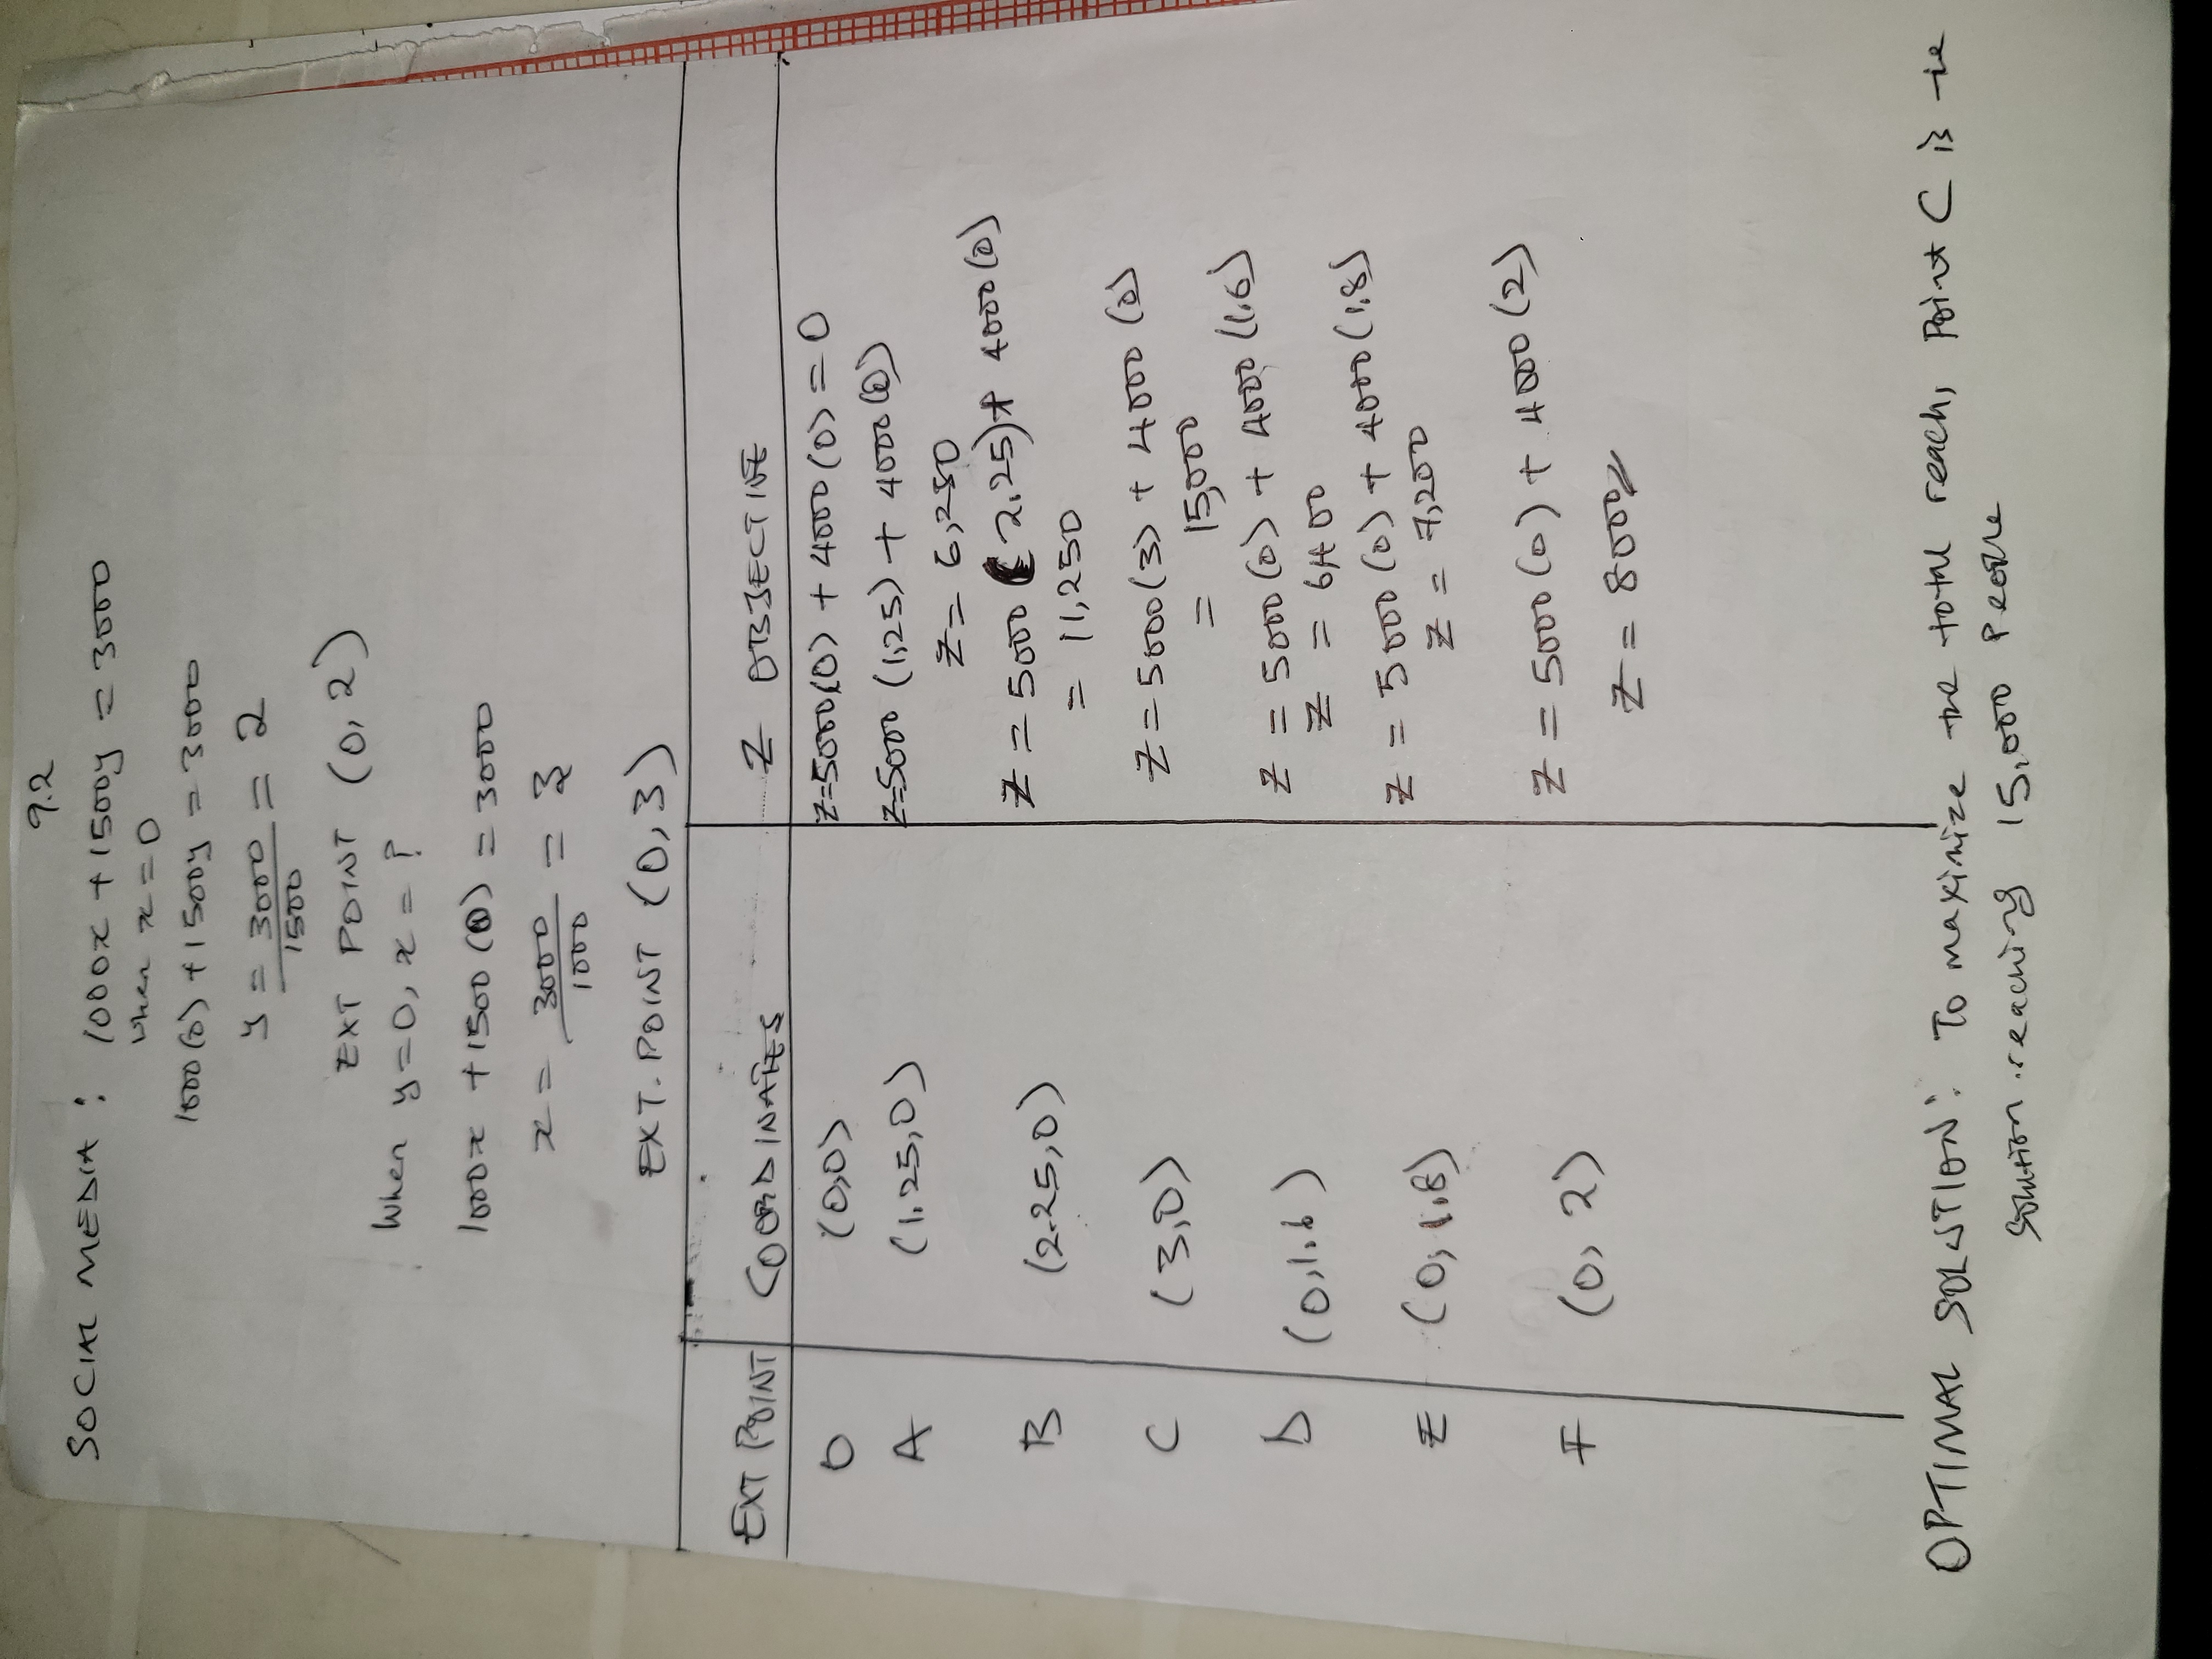 9.2
SOCIAL MEDIA : 1000x + 1500y = 3000
When x = 0
1000(0) + 1500y = 3000
y = 3000/1500 = 2
EXT POINT (0, 2)
When y=0, x = ?
1000x + 1500(0) = 3000
x = 3000/1000 = 3
EXT. POINT (0,3)
EXT POINT COORDINATES Z OBJECTIVE
O (0,0) Z=5000(0) + 4000(0) = 0
A (1.25,0) Z=5000 (1,25) + 4000(0)
Z = 6,250
B (2.25,0) Z = 5000 (2.25) + 4000(0)
= 11,250
C (3,0) Z = 5000(3) + 4000(0)
= 15,000
D (0,1.6) Z = 5000(0) + 4000(1.6)
Z = 6400
E (0,1.8) Z = 5000(0) + 4000(1.8)
Z = 7,200
F (0, 2) Z = 5000(0) + 4000(2)
Z = 8000
OPTIMAL SOLUTION: To maximize the total reach, Point C is the
solution reaching 15,000 People